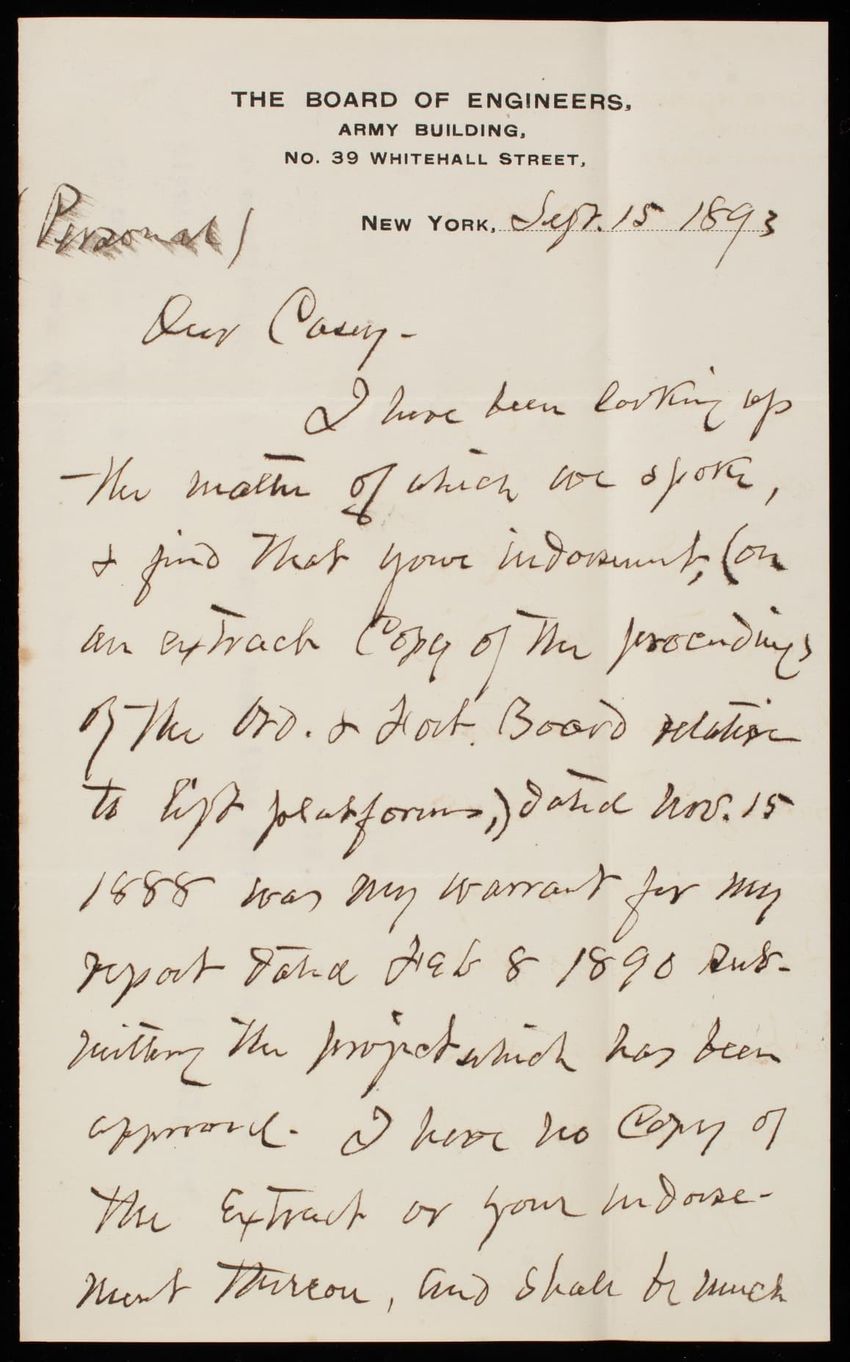 THE BOARD OF ENGINEERS,
ARMY BUILDING,
NO. 39 WHITEHALL STREET,
(Personal)
NEW YORK, Sept. 15 1893
Dear Casey -
I have been looking up
the matter of which we spoke,
& find that your indorsement, (on
an extract copy of the proceedings
of the Ord. & Fort. Board relative
to lift platforms,) dated Nov. 15
1888 was my warrant for my
report dated Feb 8 1890 sub-
mitting the project which has been
approved. I have no copy of
the extract or your indorse-
ment thereon, and shall be much